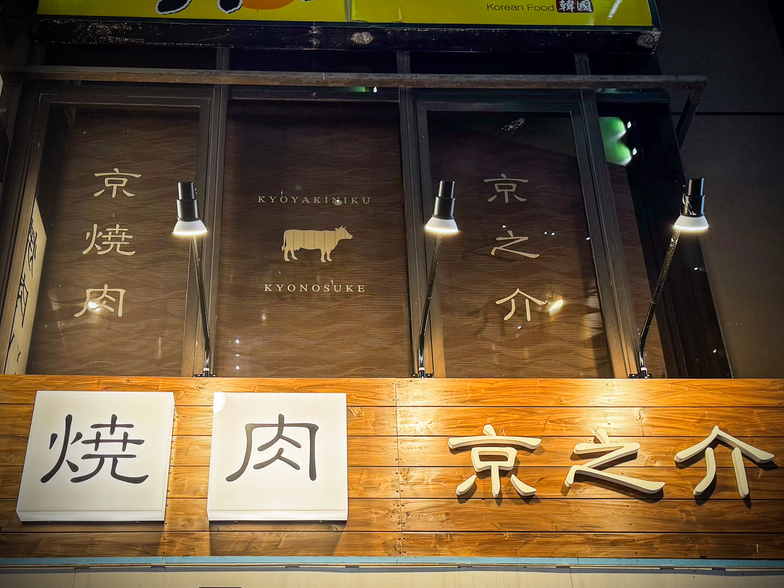 Korean Food 韓國
京焼肉
KYOYAKINIKU
KYONOSUKE
京之介
焼肉 京之介